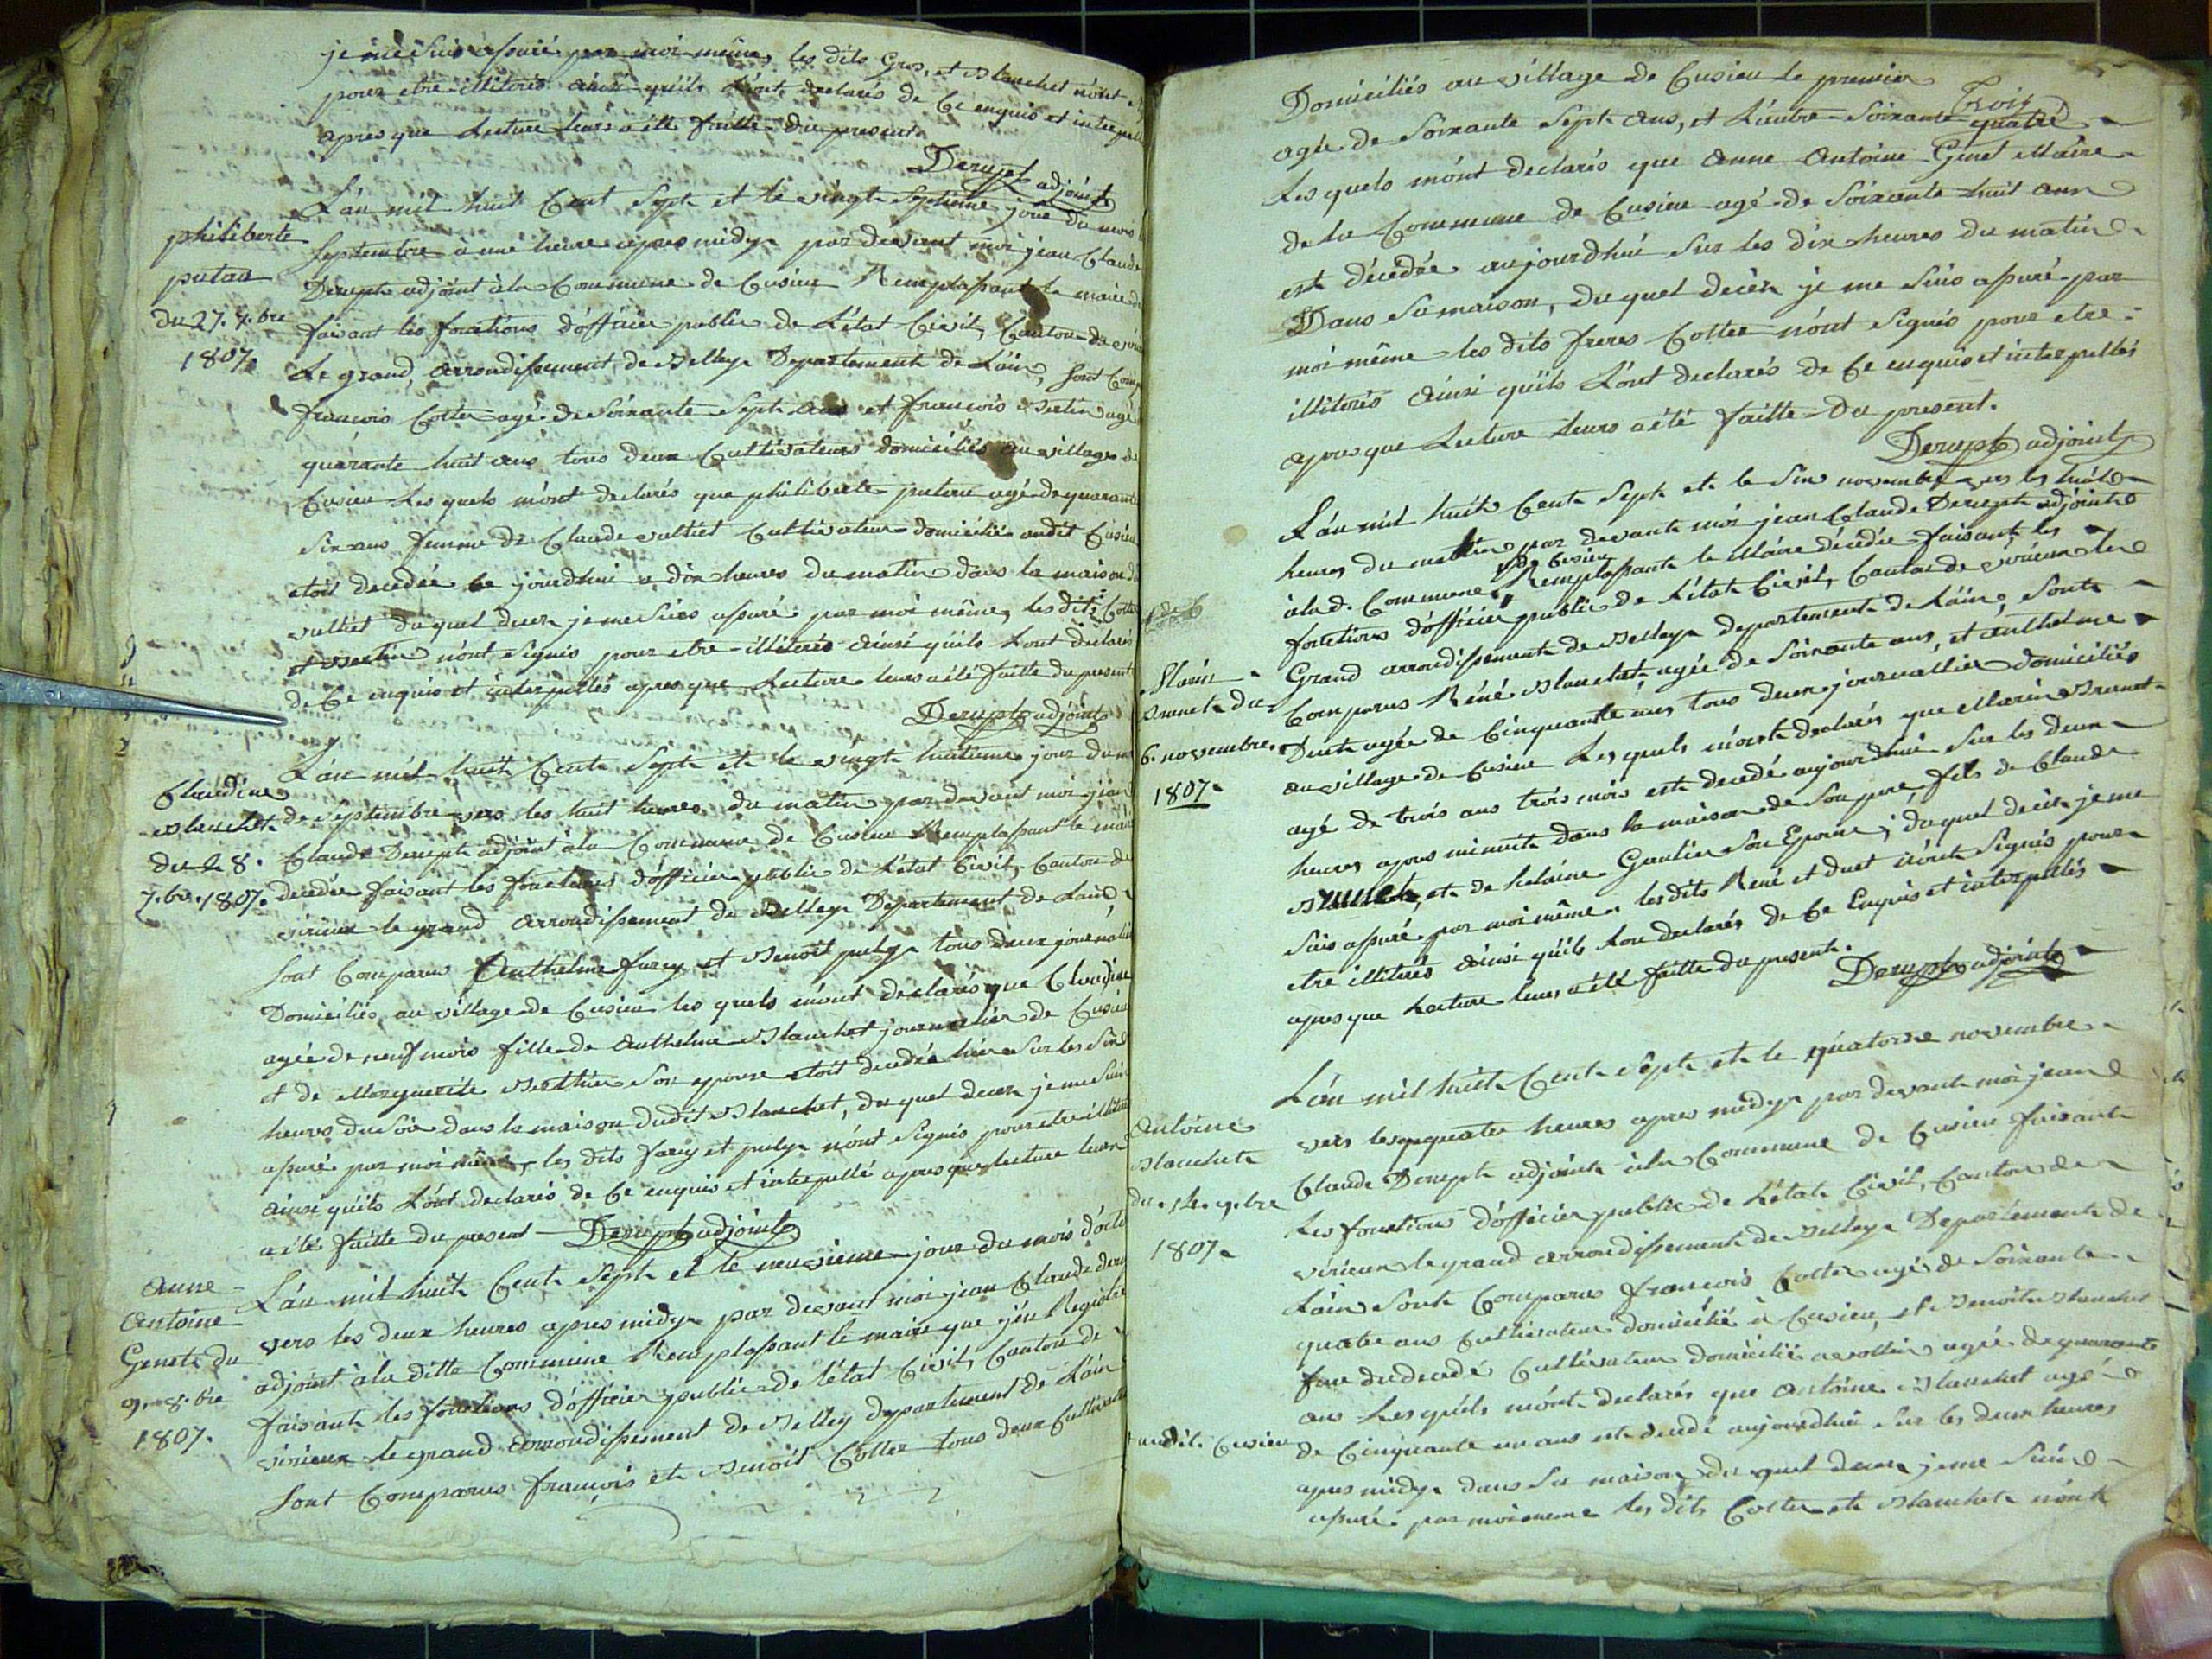 je me suis assuré par moi même, les dits Gros, et Blanchet n'ont
pour etre illitorés ainsi qu'ils l'ont declarés de Ce enquis et interpell
apres que Lecture leurs a été faitte du present
Derupt adjoint
L'án mil huit Cent Sept et le vingt Septieme jour du mois
philiberte
putau
du 27. 7.bre
1807.
Septembre à une heure apres midy par devant moi jean Claude
Derupt adjoint à la Commune de Cusieu Remplassant le maire
faisant les fonctions d'officier public de L'état Civil, Canton de
Le grand, arrondissement de Belley Departement de L'áin, sont Comp
francois Cottes agé de Soixante Sept ans et francois Bertin agé
quarante huit ans tous deux Cultivateurs domiciliés au village de
Cusieu Lesquels m'ont declarés que philiberte putau agé de quarante
Six ans femme de Claude vulliet Cultivateur domicilié audit Cusieu
etoit decedée Ce jourdhui a dix heures du matin dans la maison
vulliet duquel deces je me suis assuré par moi même, les dits Cottes
et Bertin n'ont signés pour etre illitorés ainsi qu'ils L'ont declarés
de Ce enquis et interpellés apres que Lecture leurs a été faitte du present
Derupt adjoint
L'án mil huit Cent Sept et le vingt huitieme jour du
Claudine
Blanchet
du 28.
7.bre 1807.
de Septembre vers les huit heures du matin par devant moi jean
Claude Derupt adjoint à la Commune de Cusieu Remplassant le maire
decedée faisant les fonctions d'officier public de L'état Civil, Canton de
virieux le grand arrondissement de Belley Departement de L'áin
sont Comparus Anthelme furey et Benoit pugy tous deux journalie
Domiciliés au village de Cusieu les quels m'ont declarés que Claudine
agée de neuf mois fille de Anthelme Blanchet journalier de Cusieu
et de Marguerite Berthier Son epouse etoit decedée hier sur les Six
heures du Soir dans la maison dudit Blanchet, duquel deces je me suis
assuré par moi même, les dits furey et pugy n'ont signés pour etre illitor
ainsi qu'ils L'ont declarés de Ce enquis et interpellé apres que lecture leurs
a été faitte du present Derupt adjoint
Anne
Antoine
Genet du
9. 8.bre
1807.
L'án mil huit Cent Sept et le neuvieme jour du mois d'octo
vers les deux heures apres midy par devant moi jean Claude deru
adjoint à la ditte Commune Remplassant le maire que j'en Registre
faisant les fonctions d'officier public de l'état Civil, Canton de
virieux le grand arrondissement de Belley departement de L'áin
sont Comparus francois et Benoit Cottes tous deux Cultivate
Domiciliés au village de Cusieu le premier
agée de Soixante Sept ans, et L'autre Soixante quatre
Trois
Les quels m'ont declarés que Anne Antoine Genet Maire
de la Commune de Cusieu agé de Soixante huit ans
est décédée aujourdhui sur les dix heures du matin
Dans Sa maison, du quel décès je me suis assuré par
moi même les dits freres Cottes n'ont signés pour etre
illitorés ainsi qu'ils L'ont declarés de Ce enquis et interpellés
apres que Lecture leurs a été faitte du present.
Derupt adjoint
L'án mil huit Cent Sept et le Six novembre vers les huit
heures du mattin par devant moi jean Claude Derupt adjoint
de Cusieu
à la d. Commune Remplassant le Maire décédée faisant les
fonctions d'officier public de L'état Civil, Canton de virieux le
Marin
Brunet du
6. novembre
1807.
Grand arrondissement de Belley departement de L'áin, sont
Comparus Réné Blanchet agée de Soixante ans, et anthelme
Duet agée de Cinquante ans tous deux journallier domiciliés
au village de Cusieu Les quels m'ont declarés que Marin Brunet
agé de trois ans trois mois est decedé aujourdhui sur les deux
heures apres minuit dans la maison de Son pere, fils de Claude
Brunet, et de helaine Gautier Son Epouse; duquel deces je me
suis assuré par moi même les dits René et duet n'ont signés pour
etre illitorés ainsi qu'ils L'on declarés de Ce Enquis et interpellés
apres que Lecture leurs a été faitte du present. Derupt adjoint
L'án mil huit Cent Sept et le quatorze novembre
Antoine
Blanchet
du 14. 9.bre
1807.
vers les quatre heures apres midy par devant moi jean
Claude Derupt adjoint à la Commune de Cusieu faisant
Les fonctions d'officier public de L'état Civil, Canton de
virieux le grand arrondissement de Belley Departement de
L'áin sont Comparus francois Cottes agé de Soixante
quatre ans Cultivateur domicilié à Cusieu, et Benoit Blanchet
du decedé Cultivateur domicilié agée de quarante
ans Lesquels m'ont declarés que Antoine Blanchet agé
audit. Cusieu
de Cinquante un ans est decedé aujourdhui sur les deux heures
apres midy dans Sa maison, du quel deces je me suis
assuré par moi meme les dits Cottes et Blanchet n'ont